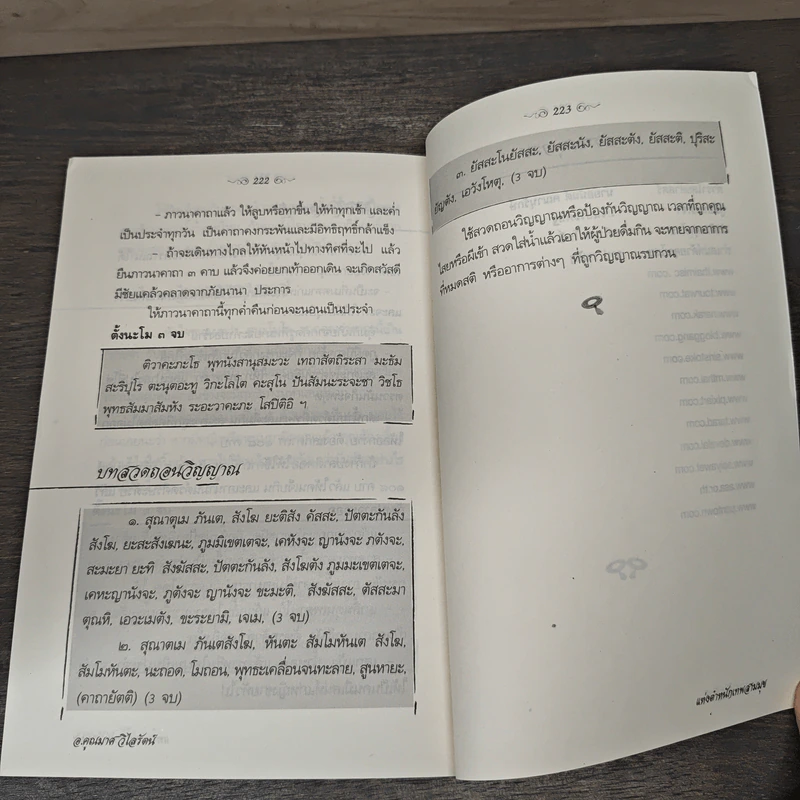 222
- ภาวนาคาถาแล้ว ให้ลูบหรือทาขึ้น ให้ทำทุกเช้า และค่ำ
เป็นประจำทุกวัน เป็นคาถาคงกระพันและมีอิทธิฤทธิ์กล้าแข็ง
- ถ้าจะเดินทางไกลให้หันหน้าไปทางทิศที่จะไป แล้ว
ยืนภาวนาคาถา ๓ คาบ แล้วจึงค่อยยกเท้าออกเดิน จะเกิดสวัสดี
มีชัยแคล้วคลาดจากภัยนานา ประการ
ให้ภาวนาคาถานี้ทุกค่ำคืนก่อนจะนอนเป็นประจำ
ตั้งนะโม ๓ จบ
ติวาคะภะโธ พุทนังสานุสมะวะ เทถาสัตถิระสา มะธัม
สะริปุโร ตะนุตอะทู วิกะโลโต คะสุโน ปันสัมนะระจะชา วิชโธ
พุทธสัมมาสัมหัง ระอะวาคะภะ โสปิติอิ ฯ
บทสวดถอนวิญญาณ
๑. สุณาตุเม ภันเต, สังโฆ ยะติสัง คัสสะ, ปัตตะกันลัง
สังโฆ, ยะสะสังเฆนะ, ภูมมิเขตเตจะ, เคหังจะ ญานังจะ ภตังจะ,
สะมะยา ยะทิ สังฆัสสะ, ปัตตะกันลัง, สังโฆตัง ภูมมะเขตเตจะ,
เคหะญานังจะ, ภูตังจะ ญานังจะ ขะมะติ, สังฆัสสะ, ตัสสะมา
ตุณหิ, เอวะเมตัง, ขะระยามิ, เจเม, (3 จบ)
๒. สุณาตเม ภันเตสังโฆ, หันตะ สัมโมหันเต สังโฆ,
สัมโมหันตะ, นะถอด, โมถอน, พุทธะเคลื่อนจนทะลาย, สูนหายะ,
(คาถายัตติ) (3 จบ)
อ.คุณมาศ วิไลรัตน์
223
๓. ยัสสะโนยัสสะ, ยัสสะนัง, ยัสสะตัง, ยัสสะติ, ปุริสะ
ปัญตัง, เอวังโหตุ, (3 จบ)
ใช้สวดถอนวิญญาณหรือป้องกันวิญญาณ เวลาที่ถูกคุณ
ไสยหรือผีเข้า สวดใส่น้ำแล้วเอาให้ผู้ป่วยดื่มกิน จะหายจากอาการ
ที่หมดสติ หรืออาการต่างๆ ที่ถูกวิญญาณรบกวน
แห่งตำหนักเทพสามมุข